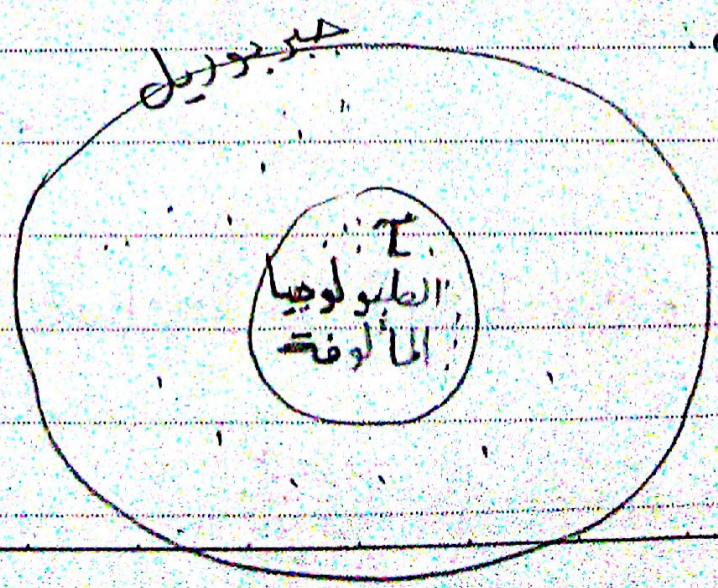 جبر بوريل
τ
الطبولوجيا
المألوفة